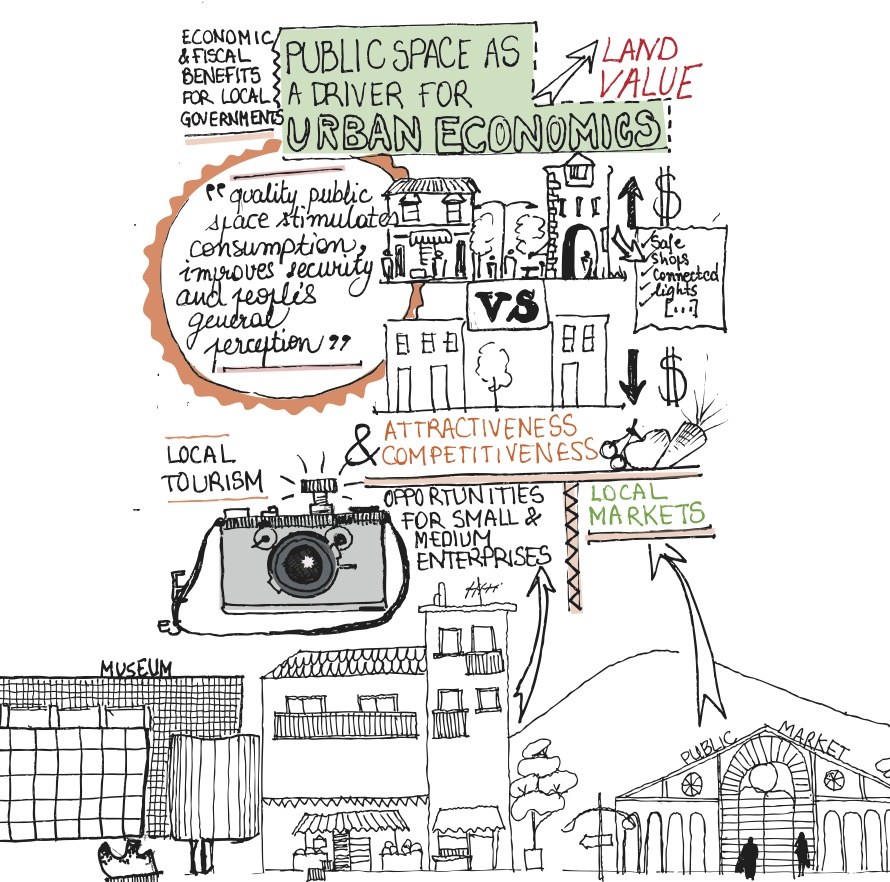 ECONOMIC
& FISCAL
BENEFITS
FOR LOCAL
GOVERNMENTS
PUBLIC SPACE AS
A DRIVER FOR
URBAN ECONOMICS
LAND
VALUE
"quality public
space stimulates
consumption,
improves security
and people's
general
perception"
$
✓ Safe
✓ Shops
✓ Connected
✓ lights
[...]
VS
$
& ATTRACTIVENESS
COMPETITIVENESS
LOCAL
TOURISM
OPPORTUNITIES
FOR SMALL &
MEDIUM
ENTERPRISES
LOCAL
MARKETS
MUSEUM
PUBLIC MARKET